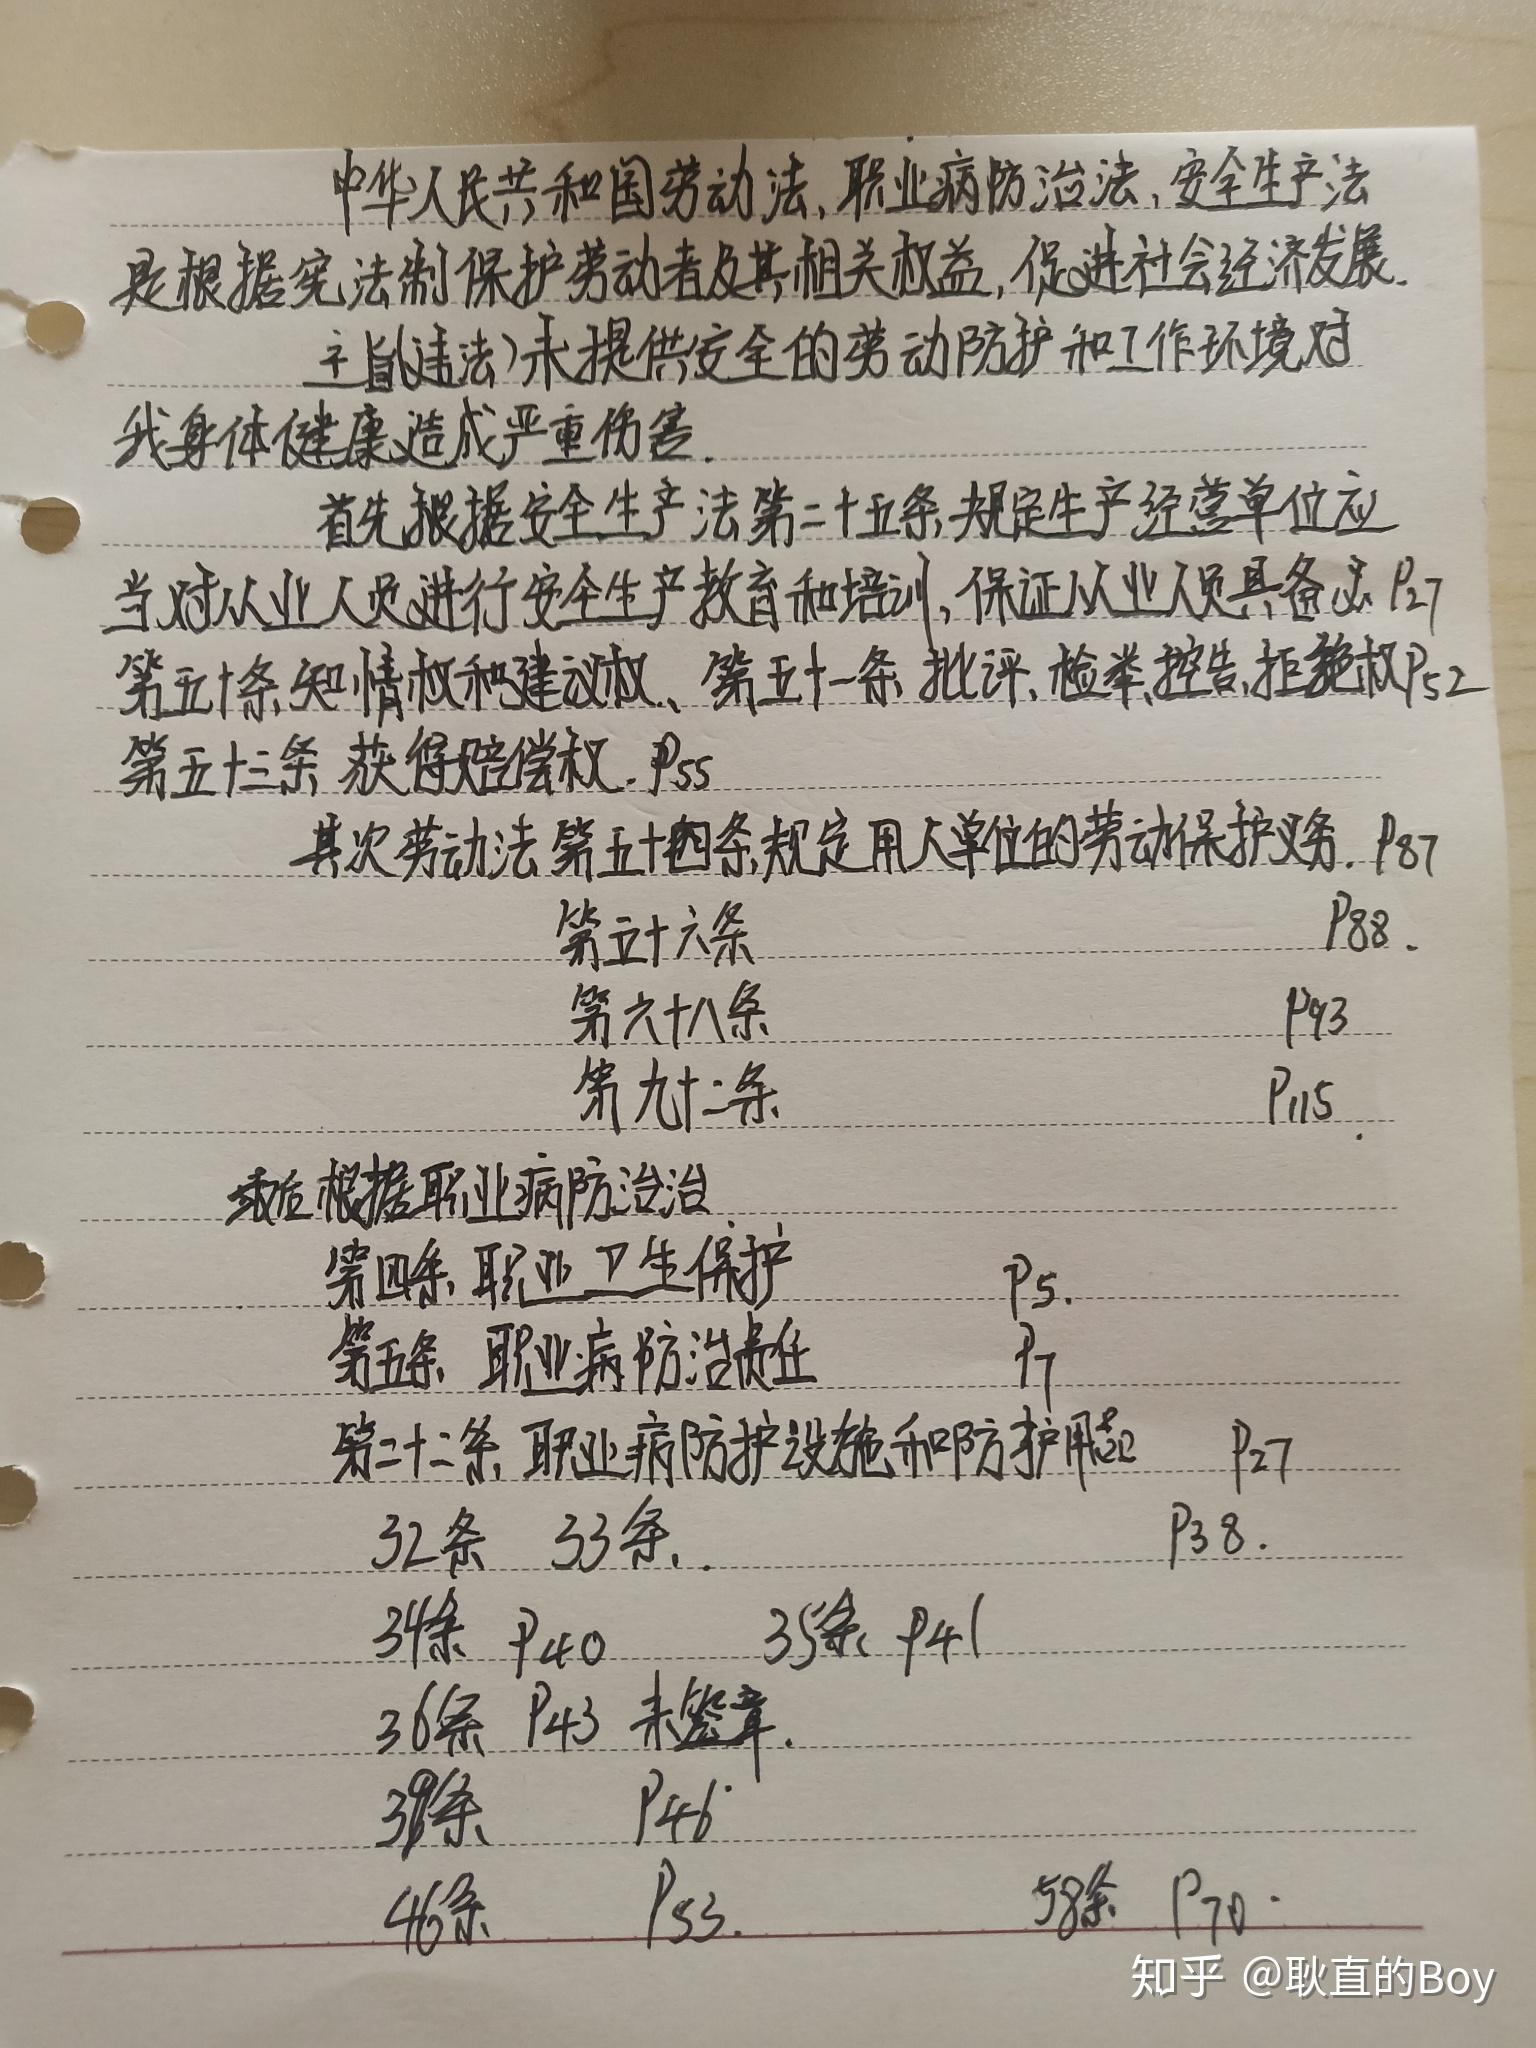 中华人民共和国劳动法、职业病防治法、安全生产法
是根据宪法制保护劳动者及其相关权益,促进社会经济发展.
主旨(违法)未提供安全的劳动防护和工作环境对
我身体健康造成严重伤害.
首先根据安全生产法第二十五条,规定生产经营单位应
当对从业人员进行安全生产教育和培训,保证从业人员具备必 P27
第五十条,知情权和建议权、第五十一条,批评、检举、控告、拒绝权P52
第五十三条 获得赔偿权. P55
其次劳动法第五十四条,规定用人单位的劳动保护义务. P87
第五十六条 P88.
第六十八条 P93
第九十二条 P115
最后根据职业病防治治
第四条、职业卫生保护 P5.
第五条、职业病防治责任 P7
第二十二条、职业病防护设施和防护用品 P27
32条 33条、 P38.
34条 P40 35条、P41
36条 P43 未签章.
39条、 P46
46条 P53. 58条 P70
知乎 @耿直的Boy